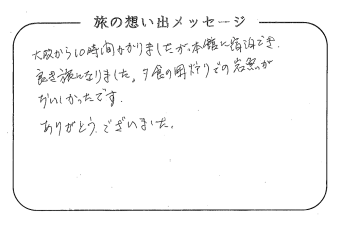 旅の想い出メッセージ
大阪から10時間かかりましたが、本館に宿泊でき、
良き旅となりました。夕食の囲炉りでの岩魚が
おいしかったです。
ありがとうございました。